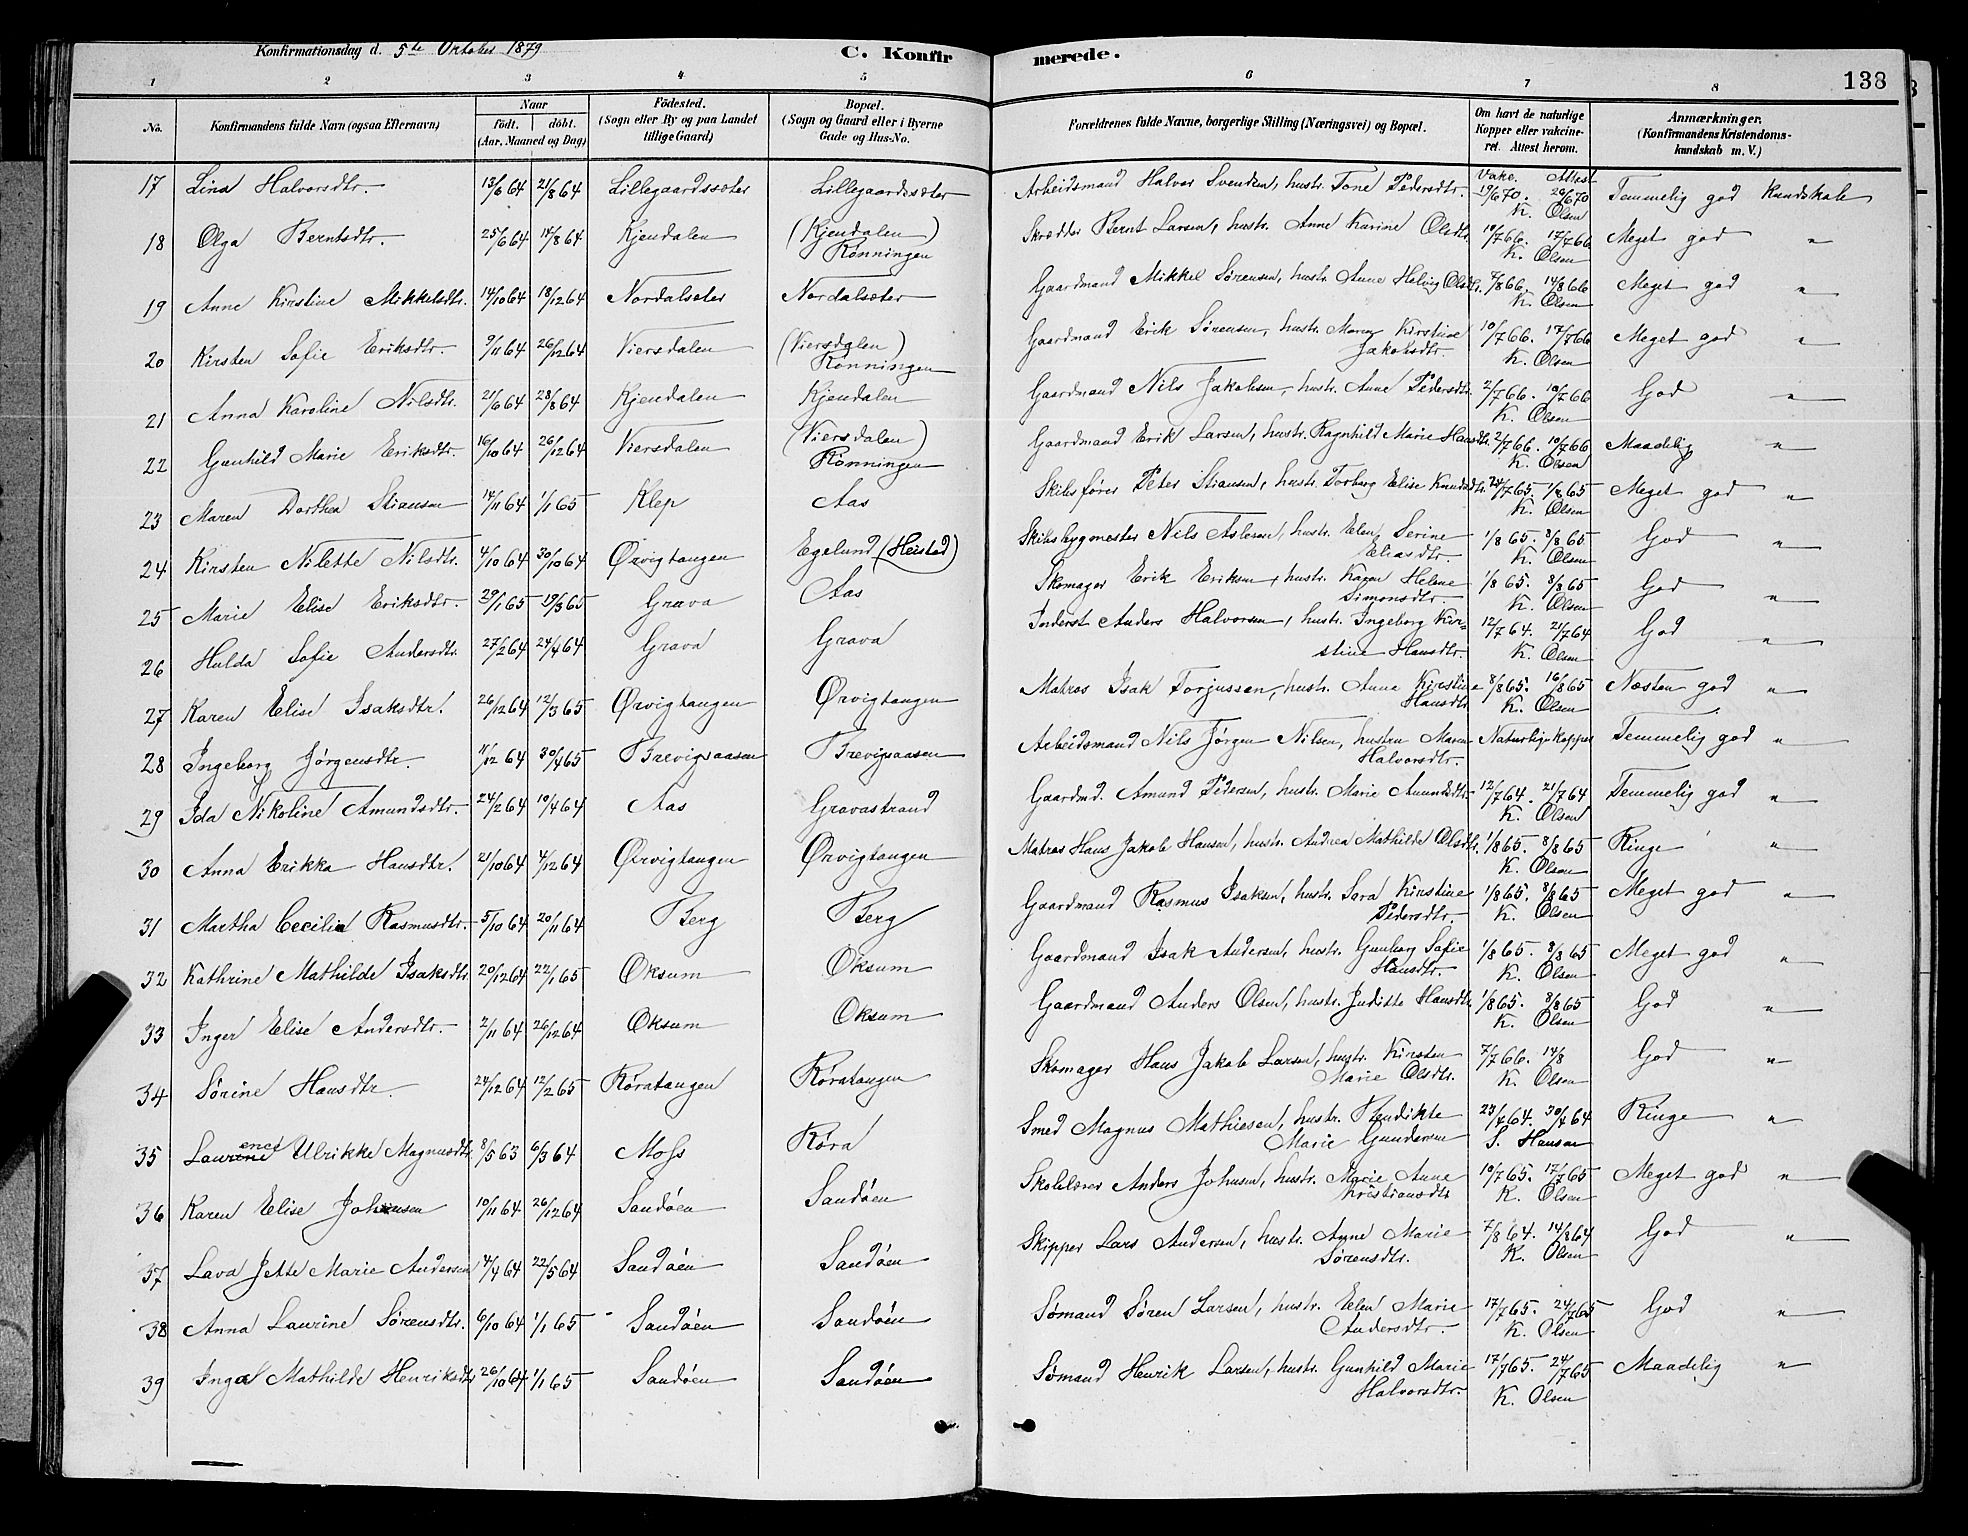 Konfirmationsdag d. 5te Oktober 1879
C. Konfirmerede.
138
1 2 3 4 5 6 7 8
No. Konfirmandens fulde Navn (ogsaa Efternavn) Naar født. døbt. (Aar, Maaned og Dag) Fødested. (Sogn eller By og paa Landet tillige Gaard) Bopæl. (Sogn og Gaard eller i Byerne Gade og Hus-No. Forældrenes fulde Navne, borgerlige Stilling (Næringsvei) og Bopæl. Om havt de naturlige Kopper eller vakcineret. Attest herom. Anmærkninger. (Konfirmandens Kristendomskundskab m. V.)
Vakc. Attest
17 Lina Halvorsdtr. 13/6 64 21/8 64 Lillegaardssæter Lillegaardssæter Arbeidsmand Halvor Svendsen, hustr. Tone Pedersdtr. 19/6 70. 26/6 70 Temmelig god Kundskab
K. Olsen
18 Olga Berntsdtr. 25/6 64 14/8 64 Kjendalen (Kjendalen) Skrædder Bernt Larsen, hustr. Anne Karine Olsdtr. 10/7 66. 17/7 66 Meget god "
Rønningen K. Olsen
19 Anne Kirstine Mikkelsdtr. 14/10 64 18/12 64 Nordalsæter Nordalsæter Gaardmand Mikkel Sørensen, hustr. Anne Helvig Olsdtr. 7/8 66. 14/8 66 Meget god "
K. Olsen
20 Kirsten Sofie Eriksdtr. 9/11 64 26/12 64 Viersdalen (Viersdalen) Gaardmand Erik Sørensen, hustr. Maren Kirstine 10/7 66. 17/7 66 Meget god "
Rønningen Jakobsdtr. K. Olsen
21 Anna Karoline Nilsdtr. 21/6 64 28/8 64 Kjendalen Kjendalen Gaardmand Nils Jakobsen, hustr. Anne Pedersdtr. 2/7 66. 10/7 66 God "
K. Olsen
22 Gunhild Marie Eriksdtr. 16/10 64 26/12 64 Viersdalen (Viersdalen) Gaardmand Erik Larsen, hustr. Ragnhild Marie Hansdtr. 2/7 66. 10/7 66 Maadelig "
Rønningen K. Olsen
23 Maren Dorthea Stiansen 14/11 64 1/1 65 Klep Aas Skibsfører Peter Stiansen, hustr. Torborg Elise Knudsdtr. 24/7 65. 1/8 65 Meget god "
K. Olsen
24 Kirsten Nilette Nilsdtr. 4/10 64 30/10 64 Ørvigtangen Egelund (Heistad) Skibsbygmester Nils Aslesen, hustr. Elen Serine 1/8 65. 8/8 65 God "
Eliasdtr. K. Olsen
25 Marie Elise Eriksdtr. 29/1 65 19/3 65 Grava Aas Skomager Erik Eriksen, hustr. Karen Helene 1/8 65. 8/8 65 God "
Simonsdtr. K. Olsen
26 Hulda Sofie Andersdtr. 27/2 64 24/4 64 Grava Grava Inderst Anders Halvorsen, hustr. Ingeborg Kir- 12/7 64. 21/7 64 God "
stine Hansdtr. K. Olsen
27 Karen Elise Isaksdtr. 26/12 64 12/3 65 Ørvigtangen Ørvigtangen Matros Isak Torjussen, hustr. Anne Kirstine 8/8 65. 16/8 65 Næsten god "
Hansdtr. K. Olsen
28 Ingeborg Jørgensdtr. 11/12 64 30/4 65 Brevigsaasen Brevigsaasen Arbeidsmand Nils Jørgen Nilsen, hustru Maren Naturlige kopper Temmelig god "
Halvorsdtr.
29 Ida Nikoline Amundsdtr. 24/2 64 10/4 64 Aas Gravastrand Gaardmd. Amund Pedersen, hustr. Marie Amundsdtr. 12/7 64. 21/7 64 Temmelig god "
K. Olsen
30 Anna Erikka Hansdtr. 21/10 64 4/12 64 Ørvigtangen Ørvigtangen Matros Hans Jakob Hansen, hustr. Andrea Mathilde Olsdtr. 1/8 65. 8/8 65 Ringe "
K. Olsen
31 Martha Cecilia Rasmusdtr. 5/10 64 20/11 64 Berg Berg Gaardmand Rasmus Isaksen, hustr. Sara Kirstine 1/8 65. 8/8 65 Meget god "
Pedersdtr. K. Olsen
32 Kathrine Mathilde Isaksdtr 20/12 64 22/1 65 Oksum Oksum Gaardmand Isak Andersen, hustr. Gunborg Sofie 1/8 65. 8/8 65 Meget god "
Hansdtr. K. Olsen
33 Inger Elise Andersdtr. 2/11 64 26/12 64 Oksum Oksum Gaardmand Anders Olsen, hustr. Juditte Hansdtr. 1/8 65. 8/8 65 God "
K. Olsen
34 Sørine Hansdtr. 24/12 64 12/2 65 Røratangen Røratangen Skomager Hans Jakob Larsen, hustr. Kirsten 7/7 66. 14/8 God "
Marie Olsdtr. K. Olsen
35 Laurine Ulrikke Magnusdtr. 8/5 63 6/3 64 Moss Røra Smed Magnus Mathiesen, hustr. Bendikte 23/4 64. 30/4 64 Ringe "
Marie Gundersen S. Hansen
36 Karen Elise Johnsen 10/11 64 26/12 64 Sandøen Sandøen Skolelærer Anders Johnsen, hustr. Marie Anne 10/7 65. 17/7 65 Meget god "
Kristiansdtr K. Olsen
37 Lava Jette Marie Andersen 4/4 64 22/5 64 Sandøen Sandøen Skipper Lars Andersen, hustr. Anne Marie 7/8 64. 14/8 64 God "
Sørensdtr. K. Olsen
38 Anna Laurine Sørensdtr. 6/10 64 1/1 65 Sandøen Sandøen Sømand Søren Larsen, hustr. Elen Marie 17/7 65. 24/7 65 God "
Andersdtr. K. Olsen
39 Inga Mathilde Henriksdtr 26/10 64 1/1 65 Sandøen Sandøen Sømand Henrik Larsen, hustr. Gunhild Marie 17/7 65. 24/7 65 Maadelig "
Halvorsdtr. K. Olsen